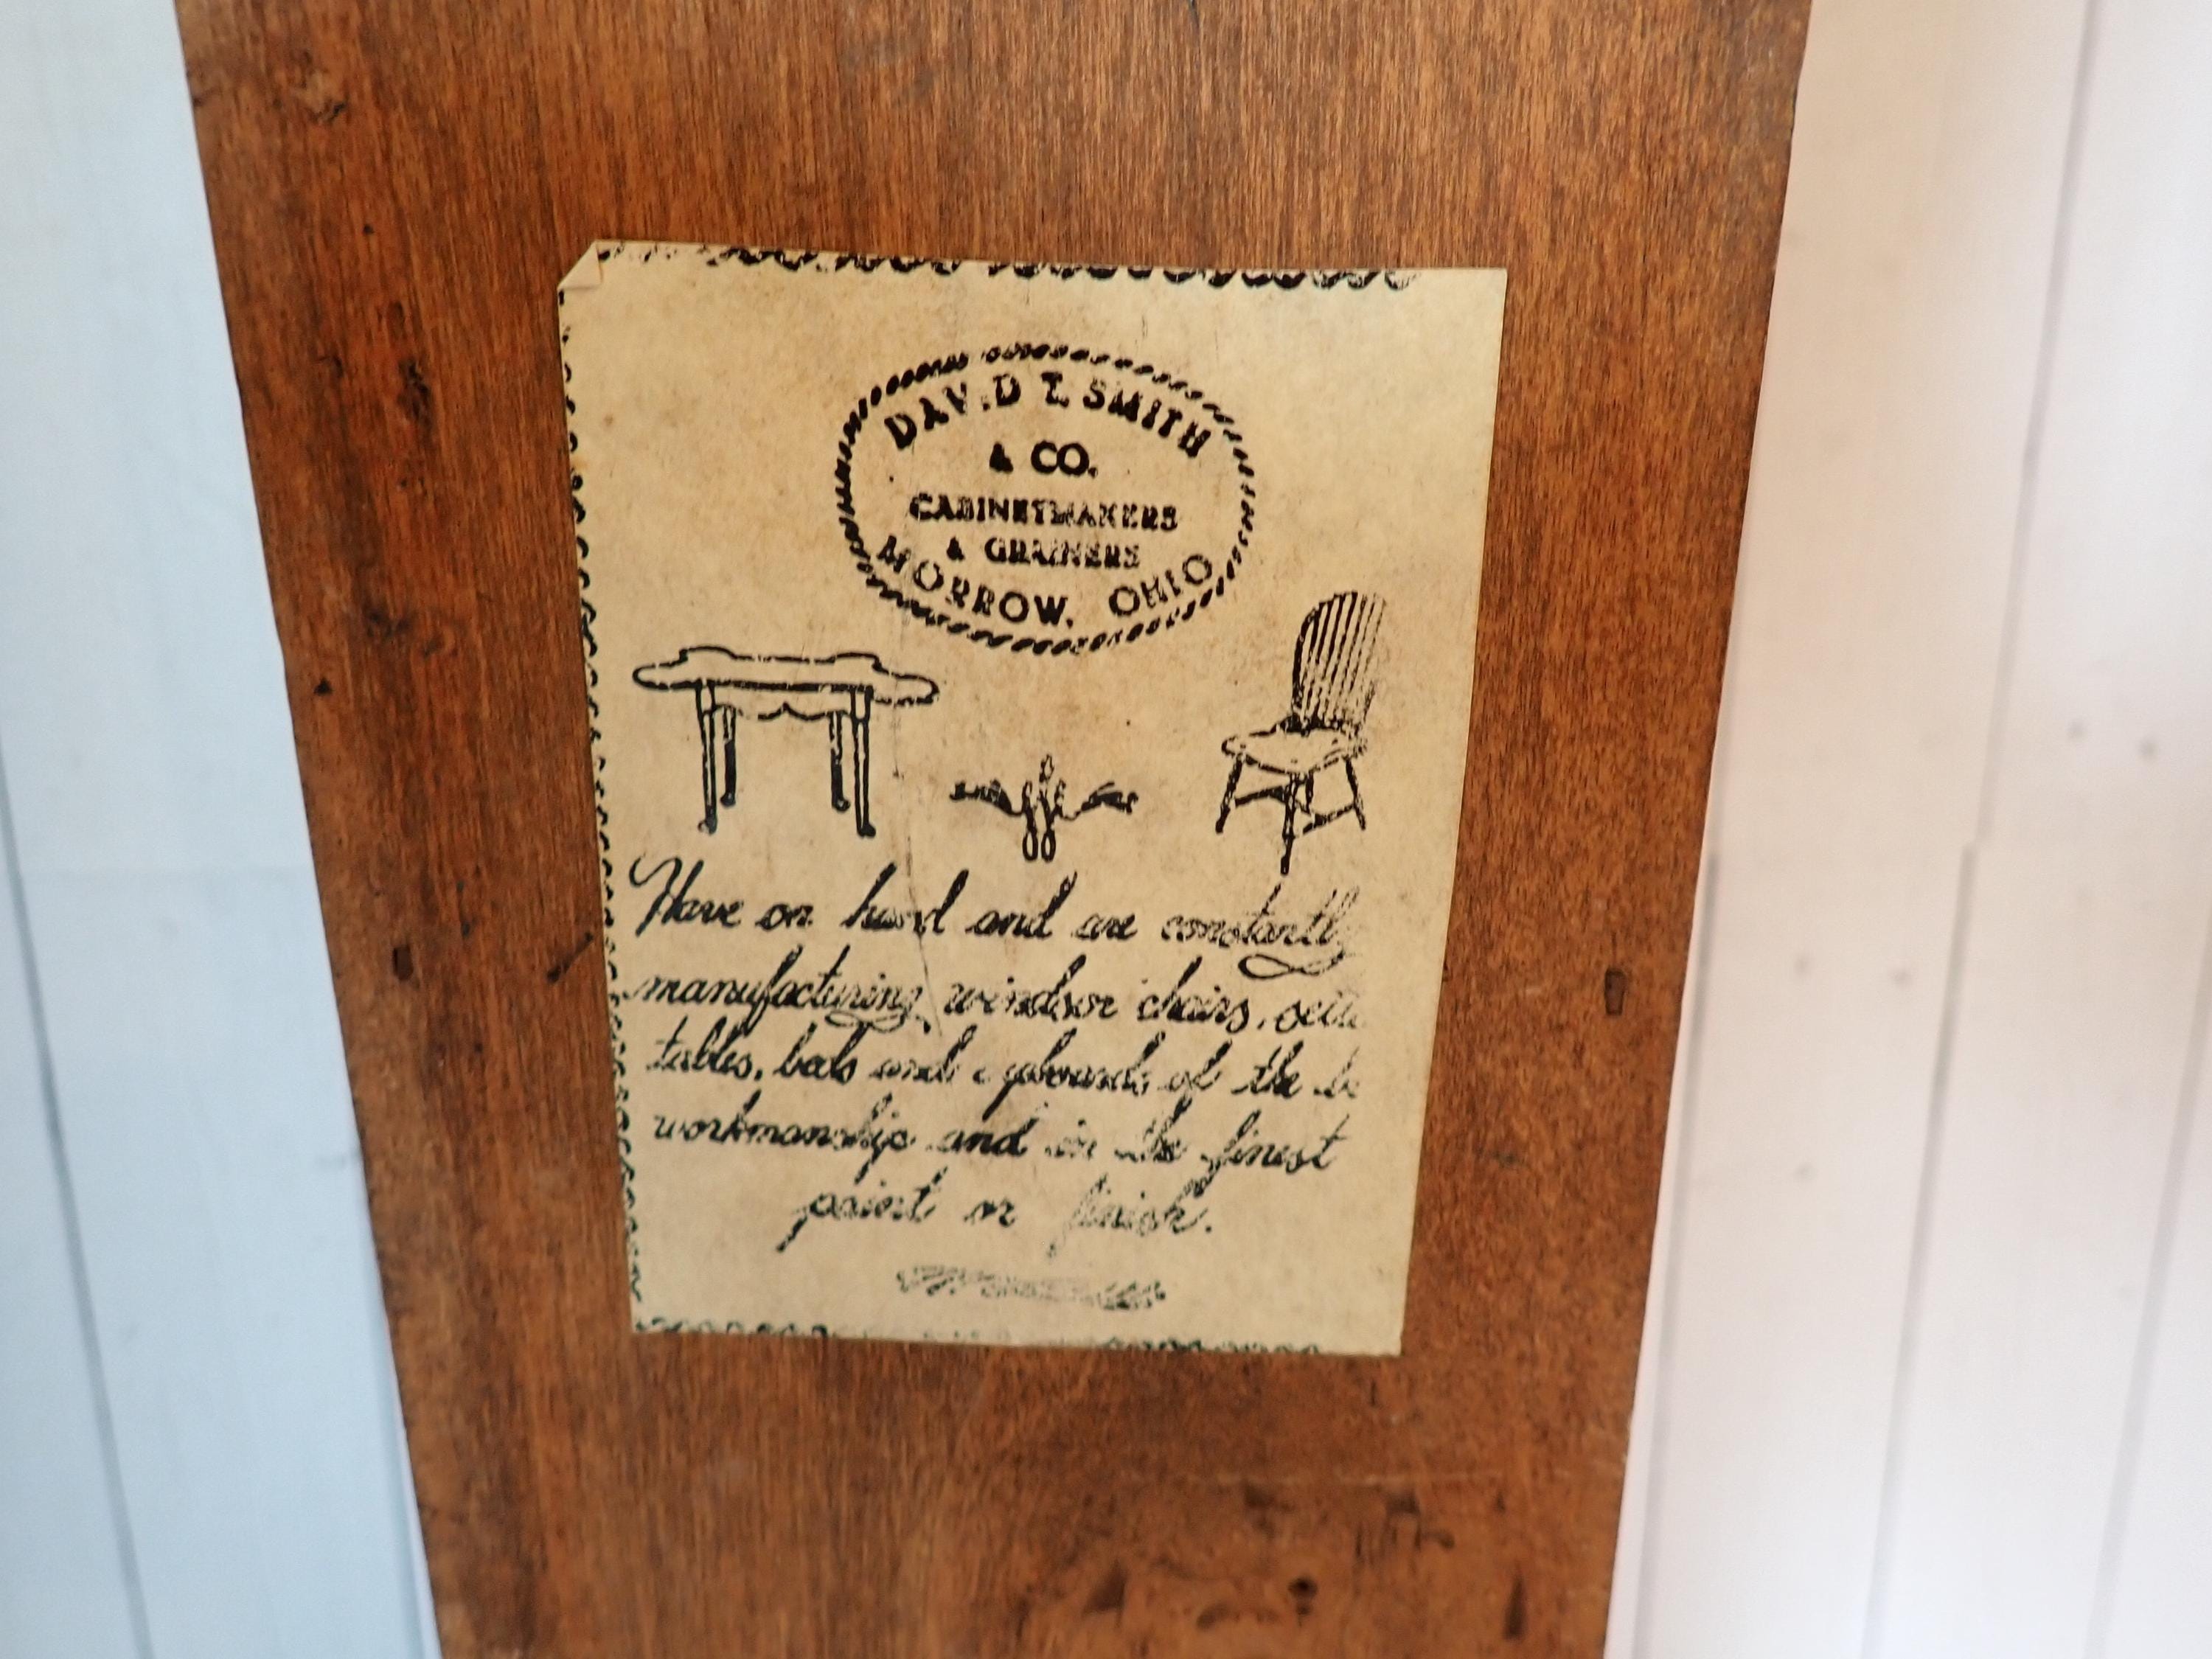 DAVID T. SMITH
& CO.
CABINETMAKERS
& GRAINERS
MORROW, OHIO
Have on hand and are constantly
manufacturing windsor chairs,
tables, beds and cupboards of the
workmanship and in the finest
paint or finish.